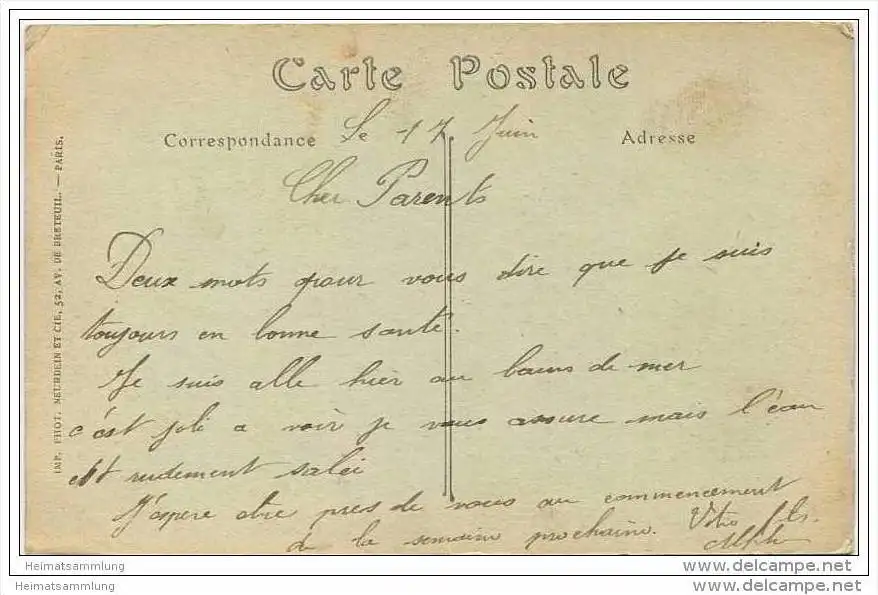 Carte Postale
Correspondance Le 17 Juin Adresse
Cher Parents
Deux mots pour vous dire que je suis
toujours en bonne santé.
Je suis alle hier au bains de mer
c'est joli a voir je vous assure mais l'eau
est rudement salei
J'espere etre pres de vous au commencement
de la semaine prochaine. Votre fils.
IMP. PHOT. NEURDEIN ET CIE, 52, AV. DE BRETEUIL. — PARIS.
Heimatsammlung
Heimatsammlung
www.delcampe.net
www.delcampe.net